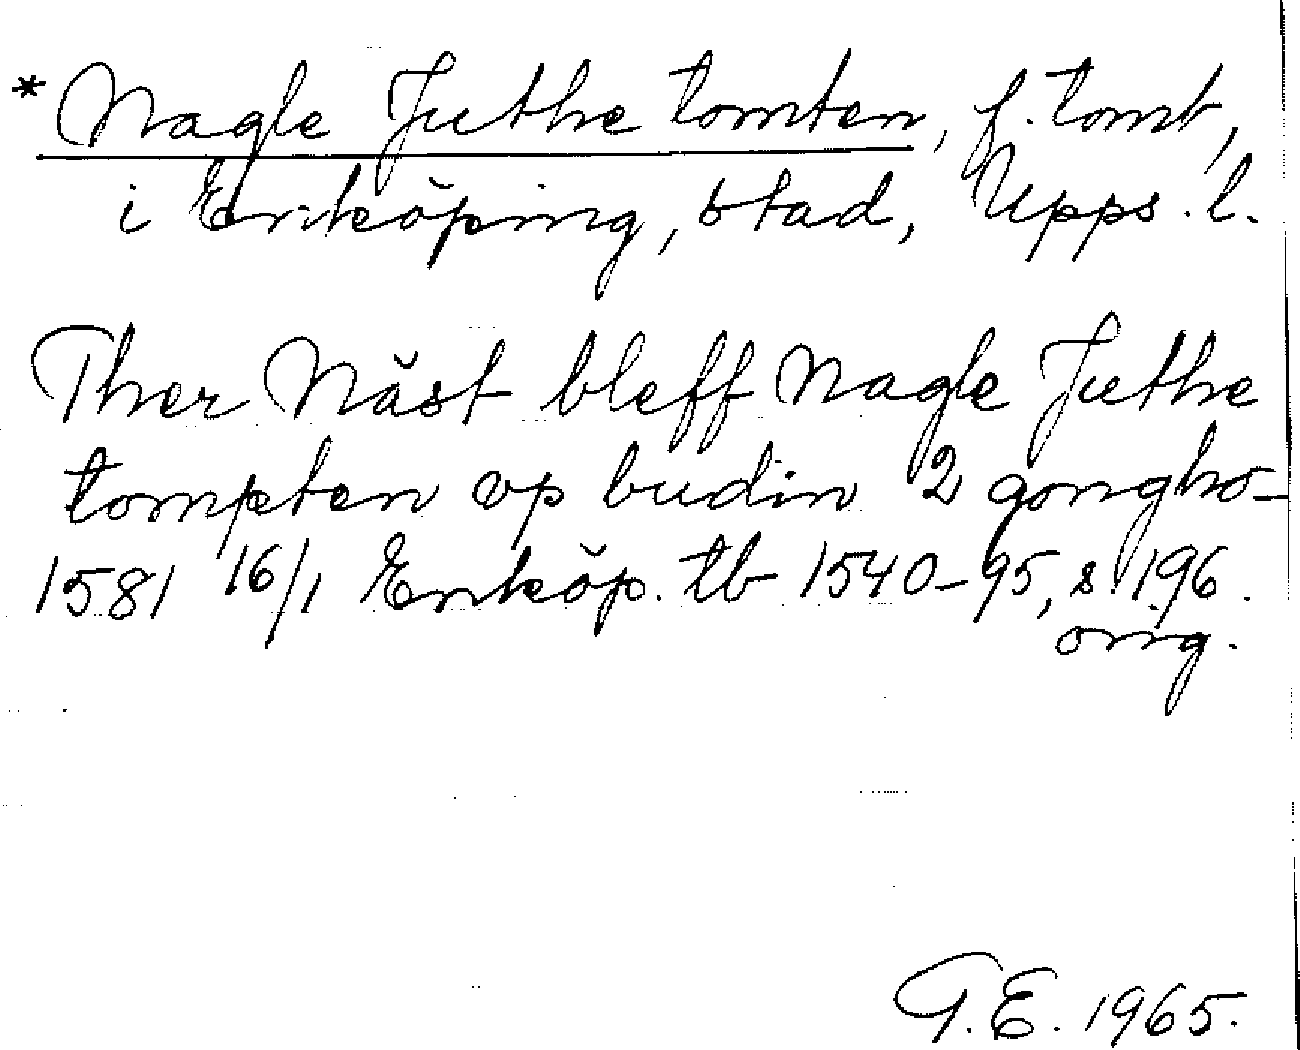 * Nagle Juthe tomten, f. tomt,
i Enköping, stad, Upps. l.
Ther Näst bleff Nagle Juthe
tompten op budin 2 gongho-
1581 16/1 Enköp. tb 1540-95, s 196.
orig.
G.E. 1965.